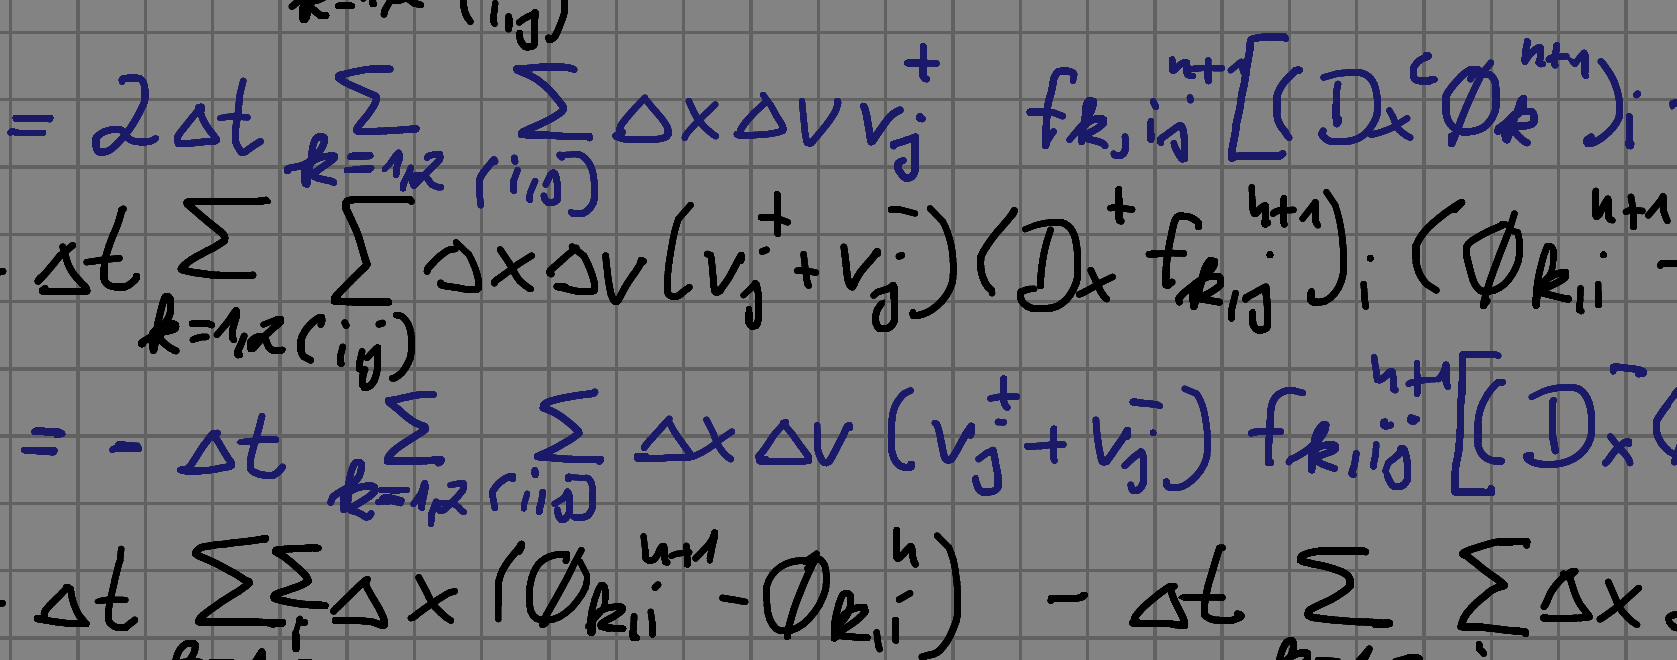 k=1,2 (i,j)
= 2 Δt Σ_{k=1,2} Σ_{(i,j)} Δx Δv v_j^+ f_{k,ij}^{n+1} [(D_x^c ϕ_k^{n+1})_i
Δt Σ_{k=1,2} Σ_{(i,j)} Δx Δv (v_j^+ + v_j^-) (D_x^+ f_{k,ij}^{n+1})_i (ϕ_{k,i}^{n+1} -
= - Δt Σ_{k=1,2} Σ_{(i,j)} Δx Δv (v_j^+ + v_j^-) f_{k,ij}^{n+1} [(D_x^-
Δt Σ Σ_i Δx (ϕ_{k,i}^{n+1} - ϕ_{k,i}^n) - Δt Σ Σ Δx